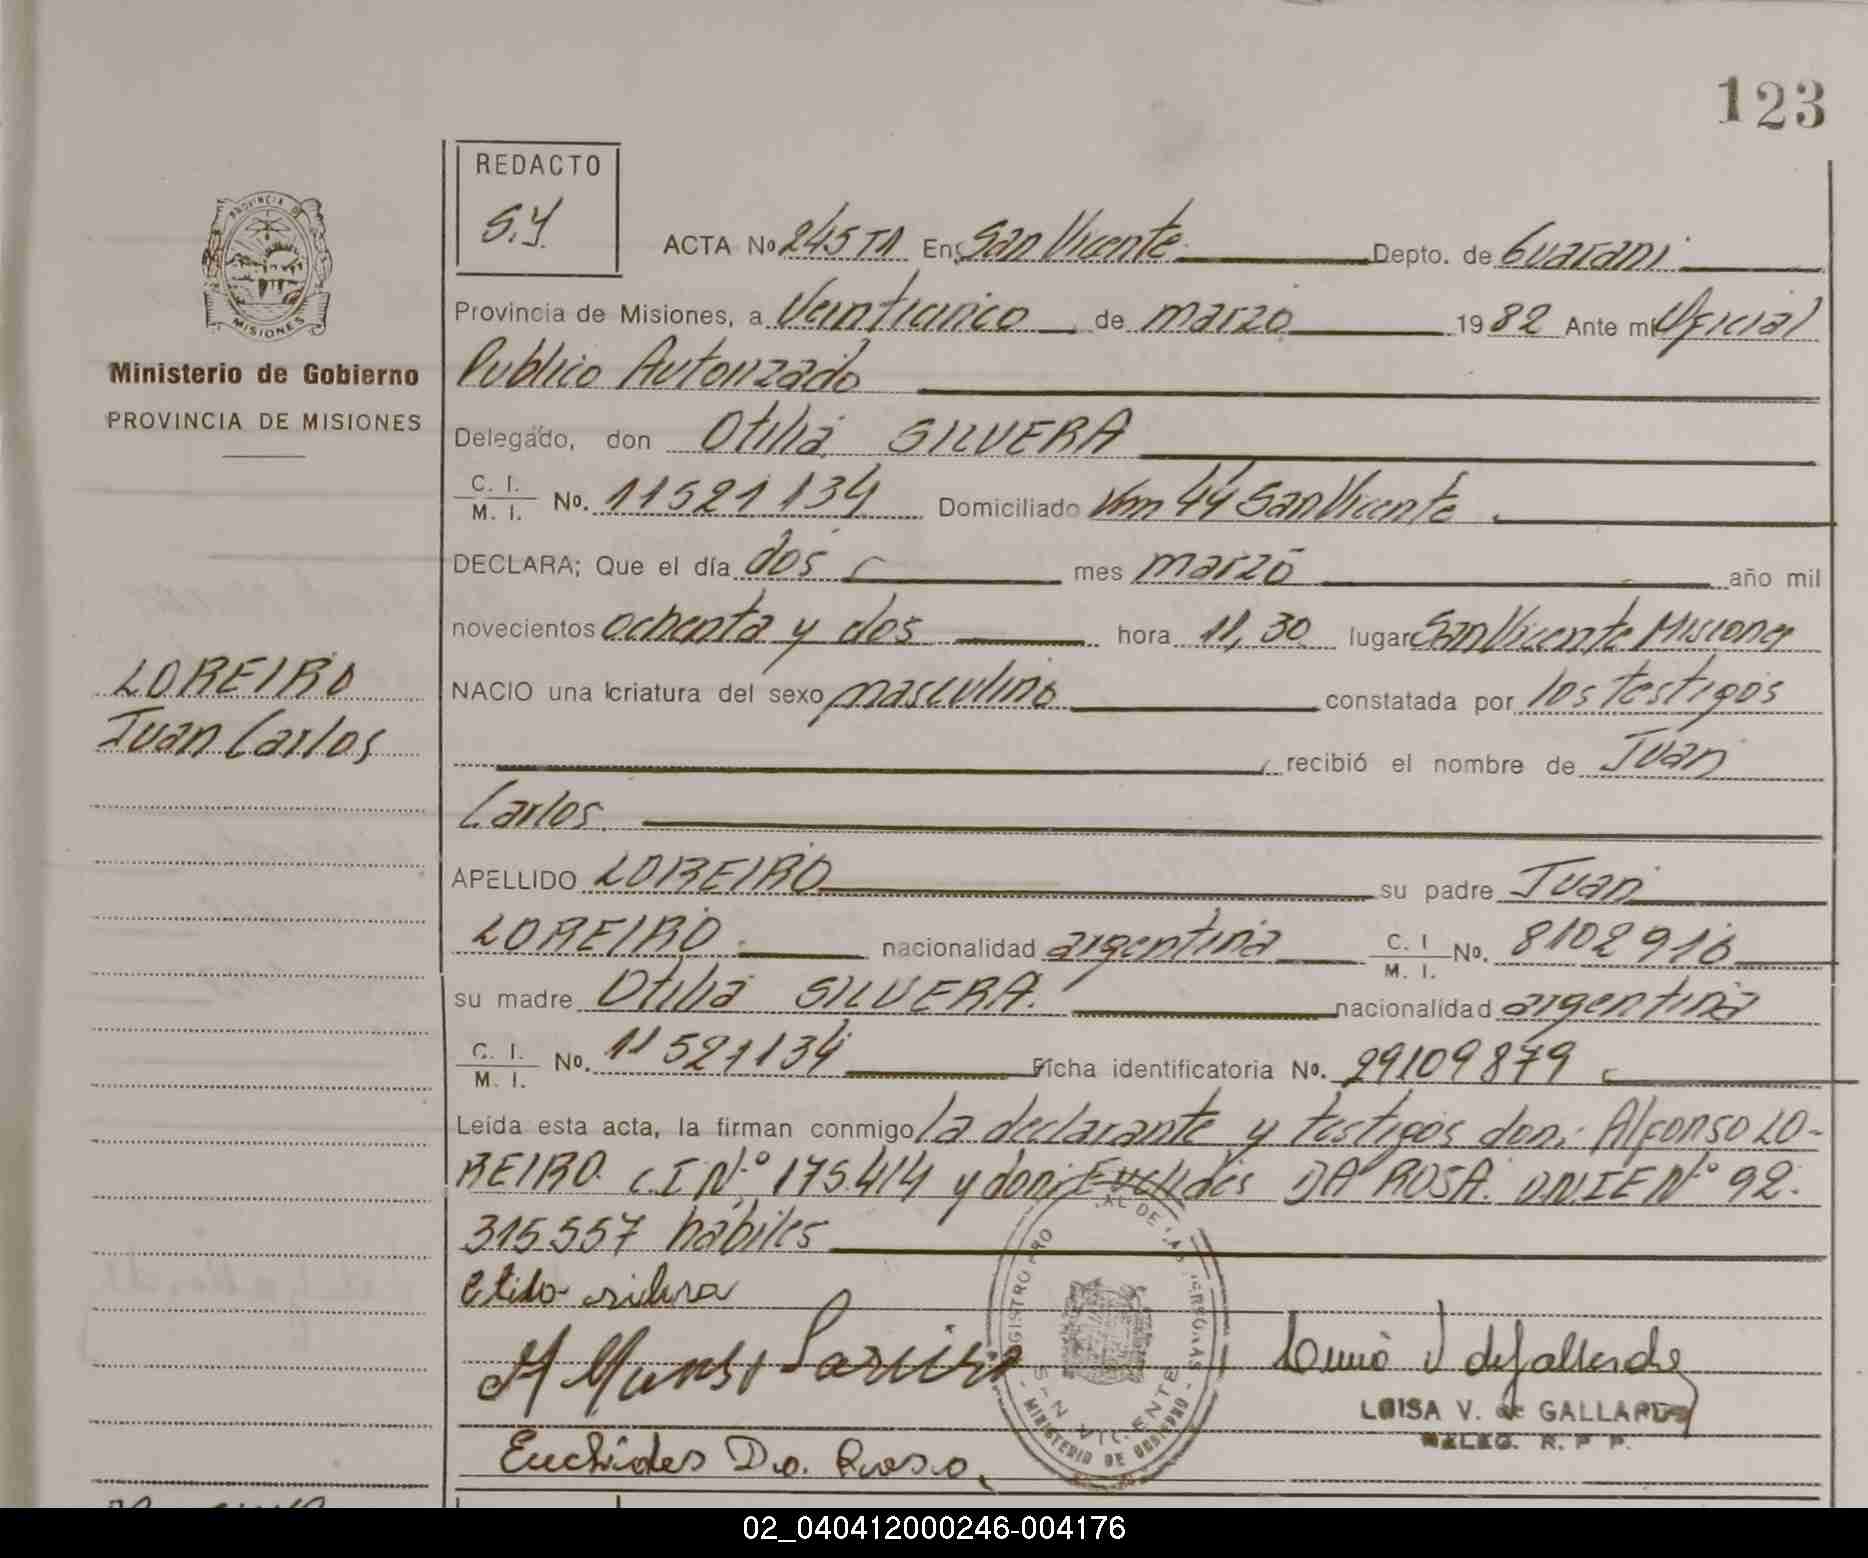 123
REDACTO
S.Y.
ACTA No 245 T1 En San Vicente Depto. de Guarani
Provincia de Misiones, a Veinticinco de marzo 1982 Ante mi Oficial
Publico Autorizado
Delegado, don Otilia SILVERA
C. I. / M. I. No. 11521134 Domiciliado Km 44 San Vicente
DECLARA; Que el día dos mes marzo año mil
novecientos ochenta y dos hora 11,30 lugar San Vicente Misiones
NACIO una criatura del sexo masculino constatada por los testigos
recibió el nombre de Juan
Carlos.
APELLIDO LOREIRO su padre Juan
LOREIRO nacionalidad argentina C. I / M. I. No. 8102916
su madre Otilia SILVERA. nacionalidad argentina
C. I. / M. I. No. 11521134 Ficha identificatoria No. 29109879
Leída esta acta, la firman conmigo la declarante y testigos don: Alfonso LO-
REIRO. C.I Nº 175.414 y don: Euclides DA ROSA. DNIE Nº 92.
315557 hábiles
PROVINCIA DE
MISIONES
Ministerio de Gobierno
PROVINCIA DE MISIONES
LOREIRO
Juan Carlos
REGISTRO PRO AL DE LAS PERSONAS
SAN VICENTE
- MINISTERIO DE GOBIERNO -
LUISA V. de GALLARDO
DELEG. R. P. P.
Euchides Da. Rosa.
02_040412000246-004176